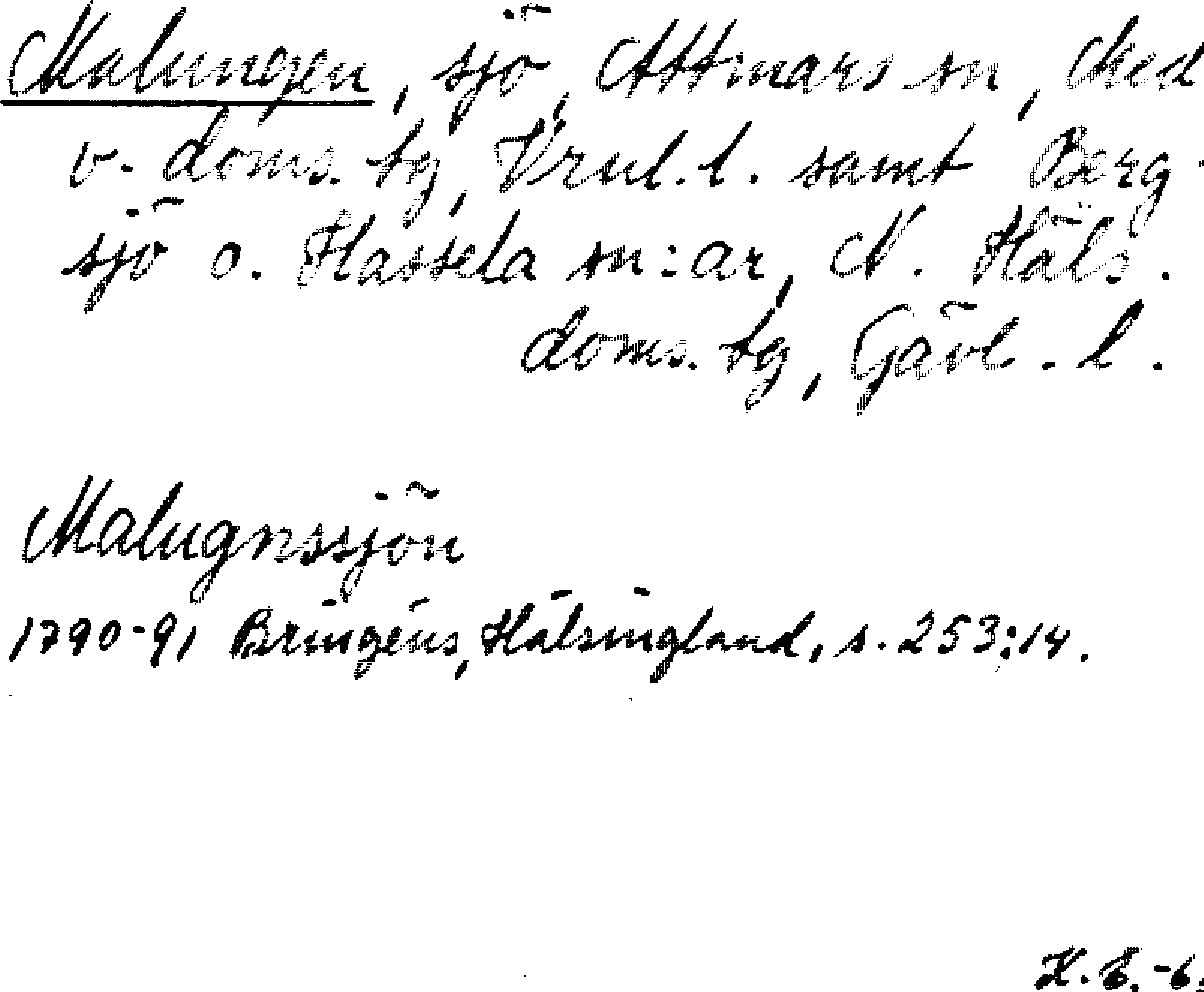 Malungen, sjö, Attmars sn, Med
v. doms. tg, Vrnl. l. samt Berg-
sjö o. Hassela sn:ar, N. Häls.
doms. tg, Gävl. l.
Malugnssjön
1790-91 Bringéus, Hälsingland, s. 253:14.
K. E. -6